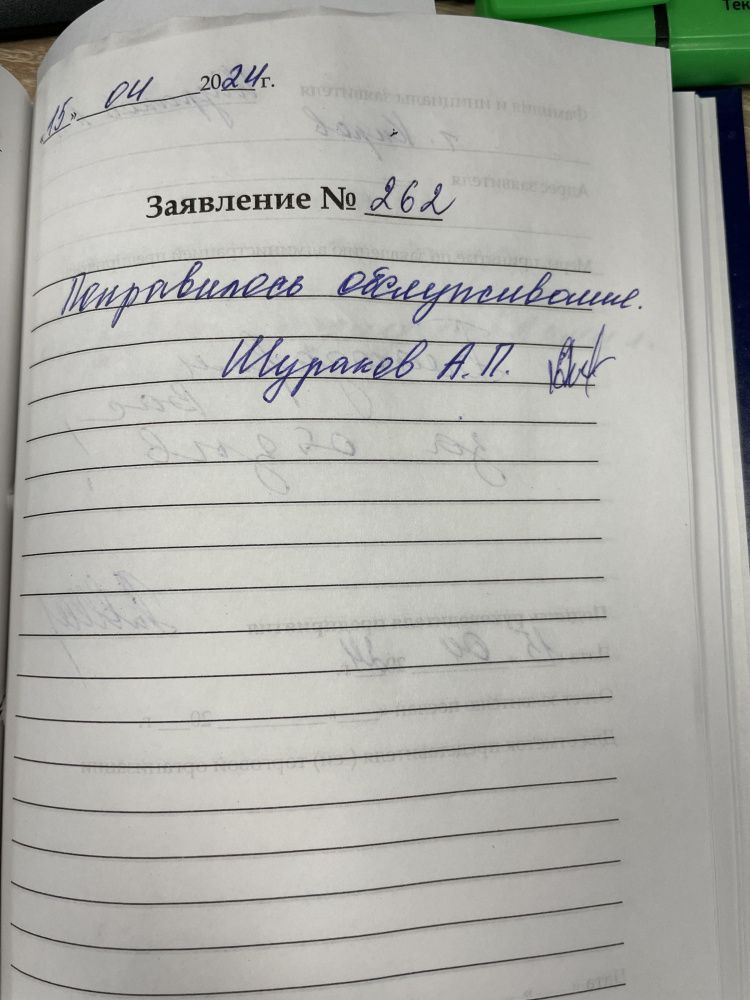 «15» 04 2024 г.
Заявление № 262
Понравилось обслуживание.
Шураков А.П.